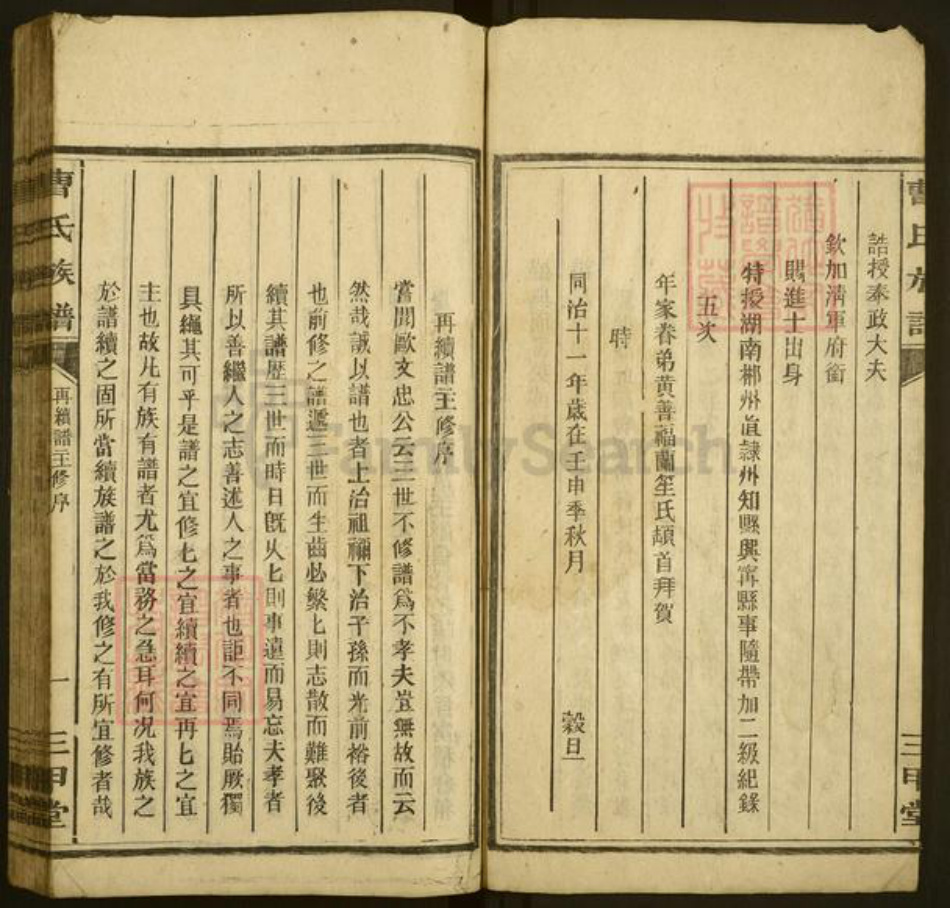 曹氏族譜
三甲堂
誥授奉政大夫
欽加清軍府銜
賜進士出身
特授湖南郴州直隸州知縣興甯縣事隨帶加二級紀錄
五次
年家眷弟黃善福蘭笙氏頓首拜賀
時
同治十一年歲在壬申季秋月 穀旦
再續譜主修序
嘗聞歐文忠公云三世不修譜爲不孝夫豈無故而云
然哉誠以譜也者上治祖禰下治子孫而光前裕後者
也前修之譜遞三世而生齒必繁匕則志散而難聚後
續其譜歷三世而時日既久匕則事遠而易忘夫孝者
所以善繼人之志善述人之事者也詎不同焉貽厥獨
具繩其可乎是譜之宜修匕之宜續續之宜再匕之宜
主也故凡有族有譜者尤爲當務之急耳何况我族之
於譜續之固所當續族譜之於我修之有所宜修者哉
曹氏族譜
再續譜主修序
一
三甲堂
FamilySearch